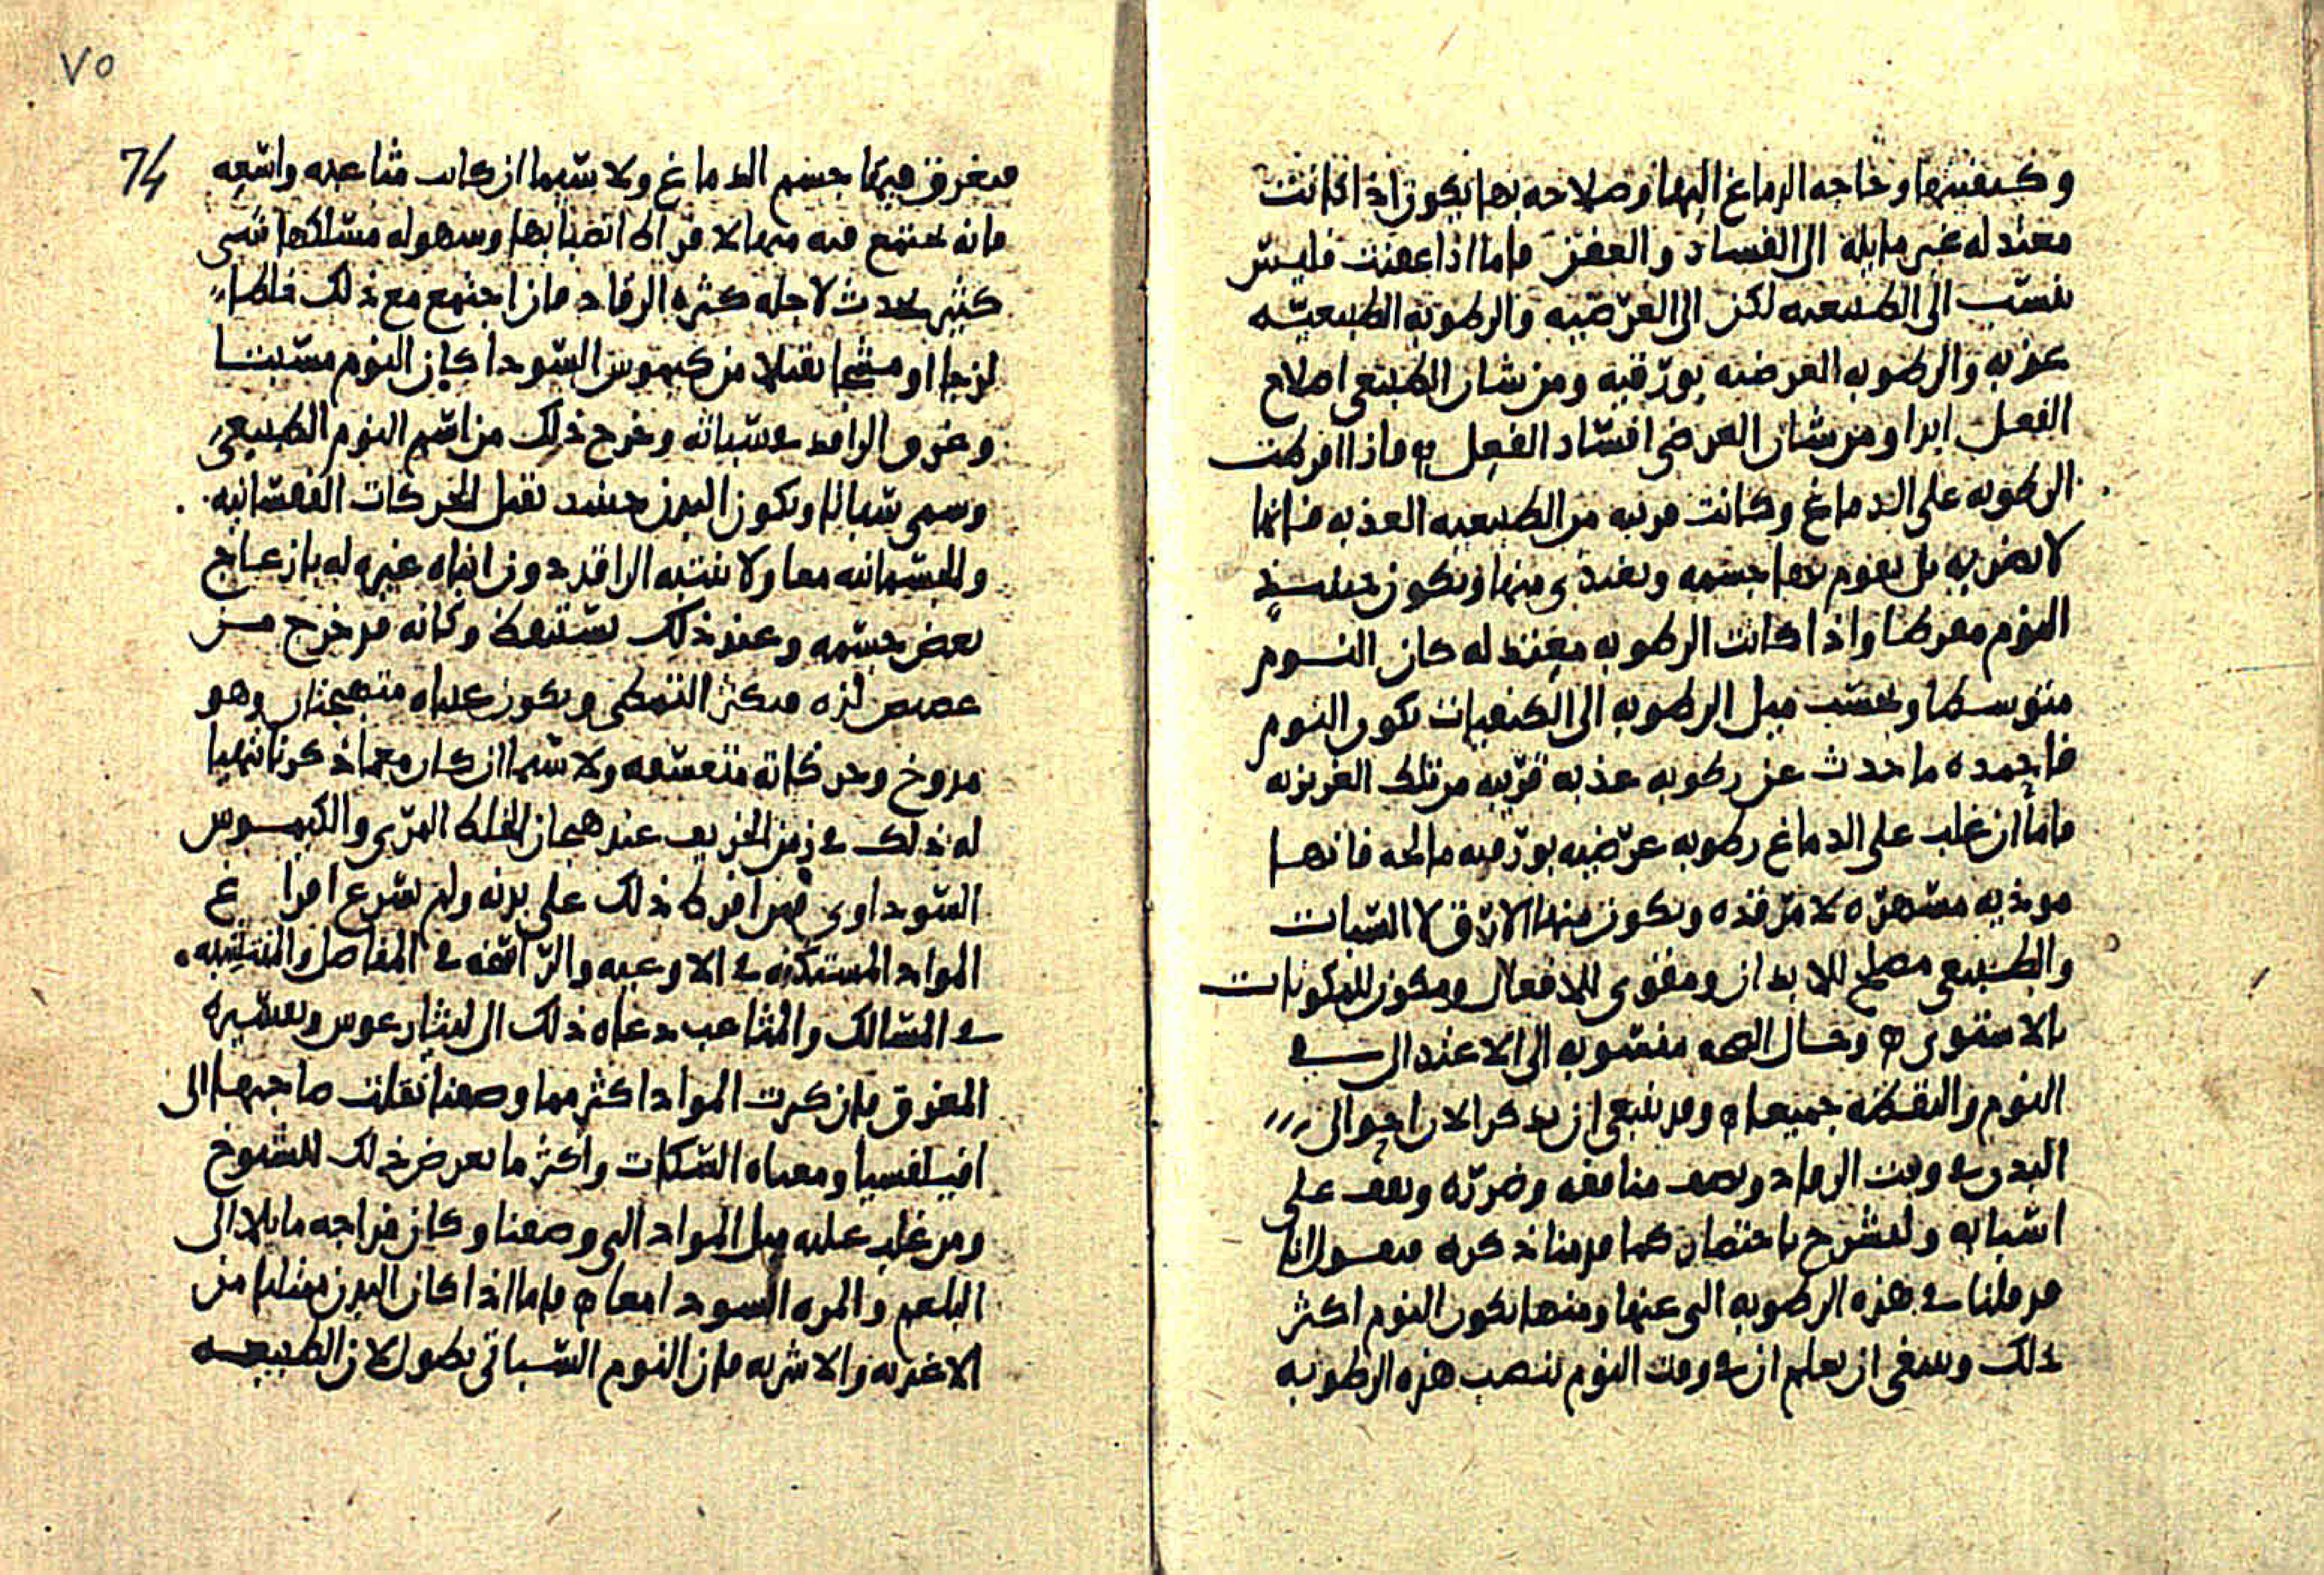 وكيفيتها وحاجه الدماغ اليها وصلاحه بها يكون اذا كانت
معتدله غير مايله الى الفساد والعفن فاما اذا عفنت فليس
تنسب الى الطبيعيه لكن الى العرضيه والرطوبه الطبيعيه
عذبه والرطوبه العرضيه بورقيه ومن شان الطبيعى اصلاح
الفعل ابدا ومن شان العرضى افساد الفعل فاذا افرطت
الرطوبه على الدماغ وكانت قريبه من الطبيعيه العذبه فانها
لا تضر به بل يقوم بها جسمه ويغتذى منها ويكون حينيذ
النوم مفرطا واذا كانت الرطوبه معتدله كان النوم
متوسطا وبحسب ميل الرطوبه الى الكيفيات يكون النوم
فاحمده ما حدث عن رطوبه عذبه قريبه من تلك الغريزيه
فاما ان غلب على الدماغ رطوبه عرضيه بورقيه مالحه فانها
موذيه مسهره لا مرقده ويكون منها الارق لا السبات
والطبيعى مصلح للابدان ومقوى للافعال ومكون للمكونات
بالاستوى وحال الصحه منسوبه الى الاعتدال في
النوم واليقظه جميعا وقد ينبغى ان نذكر الان احوال
البدن في وقت الرقاد ونصف منافعه وضرره ونقف على
اسبابه ولنشرح باختصار كما قدمنا ذكره فنقول انا
قد قلنا في هذه الرطوبه التى عنها ومنها يكون النوم اكثر
ذلك وينبغى ان يعلم ان في وقت النوم تنصب هذه الرطوبه
٧٥
74
فيغرق فيها جسم الدماغ ولا سيما ان كانت مثاعبه واسعه
فانه يجتمع فيه منها لا فراط انصبابها وسهوله مسالكها شى
كثير يحدث لاجله كثره الرقاد فان اجتمع مع ذلك خلطا
لزجا او ثقيلا من كيموس السودا كان النوم مسبتا
وغرق الراقد في سباته وخرج ذلك من اسم النوم الطبيعى
وسمى سباتا ويكون البدن حينيد ثقيل الحركات النفسانيه
والجسمانيه معا ولا ينتبه الراقد دون انباه غيره له بازعاج
بعض جسمه وعند ذلك يستيقظ وكانه قد خرج من
لزه فيكثر التمطى ويكون عيناه متهيجتان وهو
مدوخ وحركاته متعسفه ولا سيما ان كان معما ذكرنا تهيا
له ذلك في زمن الخريف عند هيجان الخلط المرى والكيموس
السوداوى فمن افرط ذلك على بدنه ولم يسرع افراغ
المواد المستكنه في الاوعيه والراسخه في المفاصل والمنتشبه
في المسالك والمثاعب دعاه ذلك الى ليثارغوس وتفسيره
المغرق فان كثرت المواد اكثر مما وصفنا نقلت صاحبها الى
افيبلفسيا ومعناه السكات واكثر ما يعرض ذلك للشيوخ
ومن غلب عليه ميل المواد التى وصفنا وكان مزاجه مايلا الى
البلغم والمره السودا معا فاما اذا كان البدن ممتليا من
الاغذيه والاشربه فان النوم السباتى يطول لان الطبيعه